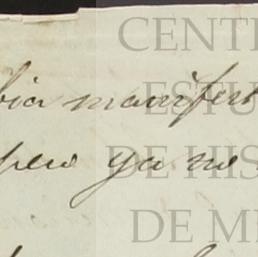 CENT
bia manifest
ESTU
pero ya no
DE HIS
DE M